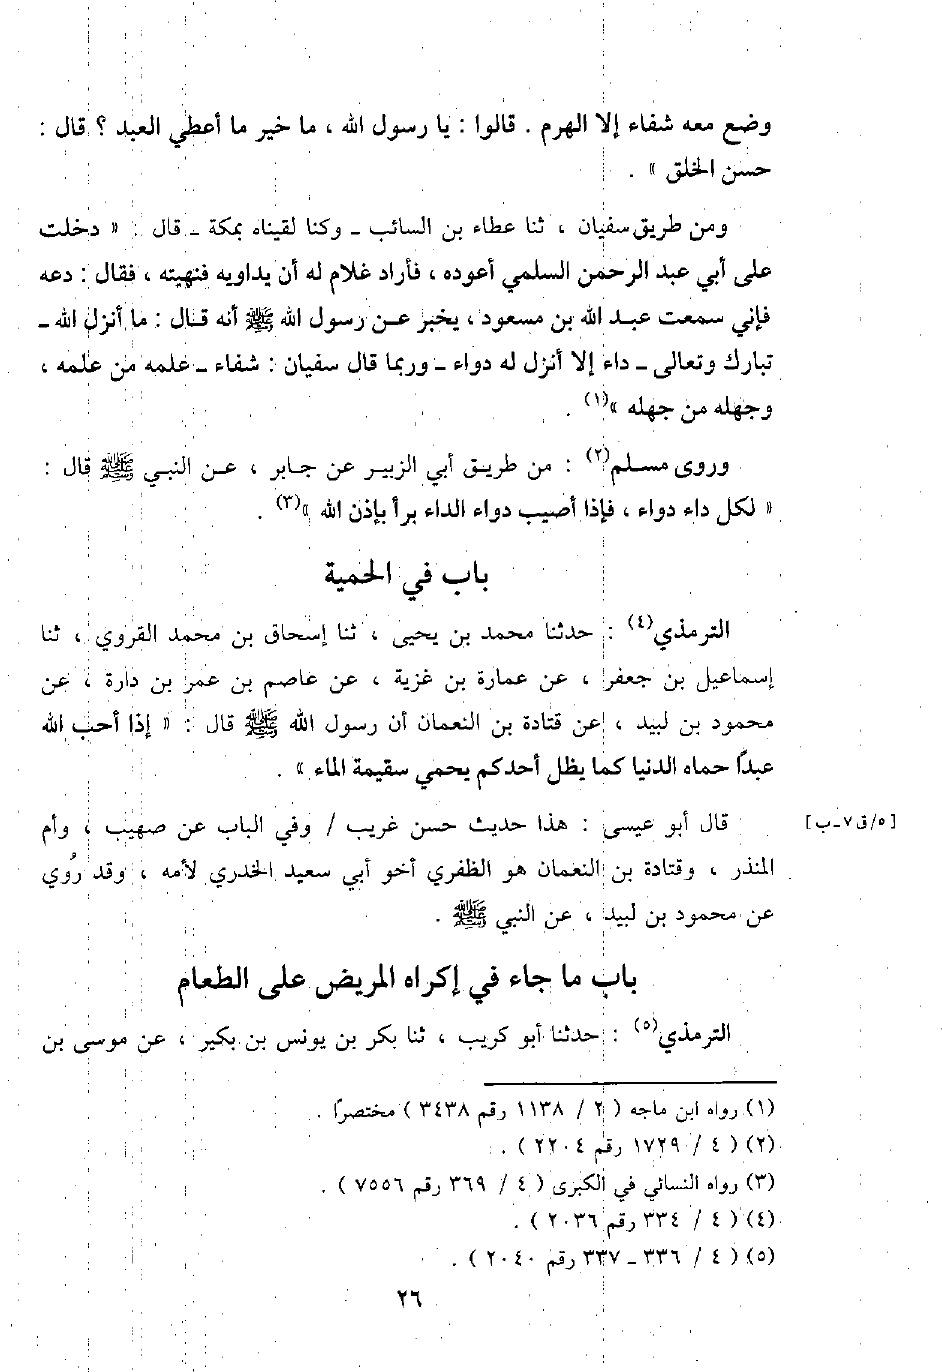 وضع معه شفاء إلا الهرم . قالوا : يا رسول الله ، ما خير ما أعطي العبد ؟ قال :
حسن الخلق » .
ومن طريق سفيان ، ثنا عطاء بن السائب ـ وكنا لقيناه بمكة ـ قال : « دخلت
على أبي عبد الرحمن السلمي أعوده ، فأراد غلام له أن يداويه فنهيته ، فقال : دعه
فإني سمعت عبد الله بن مسعود ، يخبر عن رسول الله ﷺ أنه قال : ما أنزل الله ـ
تبارك وتعالى ـ داء إلا أنزل له دواء ـ وربما قال سفيان : شفاء ـ علمه من علمه ،
وجهله من جهله »(١) .
وروى مسلم(٢) : من طريق أبي الزبير عن جابر ، عن النبي ﷺ قال :
« لكل داء دواء ، فإذا أصيب دواء الداء برأ بإذن الله »(٣) .
باب في الحمية
الترمذي(٤) : حدثنا محمد بن يحيى ، ثنا إسحاق بن محمد القروي ، ثنا
إسماعيل بن جعفر ، عن عمارة بن غزية ، عن عاصم بن عمر بن دارة ، عن
محمود بن لبيد ، عن قتادة بن النعمان أن رسول الله ﷺ قال : « إذا أحب الله
عبدًا حماه الدنيا كما يظل أحدكم يحمي سقيمة الماء » .
قال أبو عيسى : هذا حديث حسن غريب / وفي الباب عن صهيب ، وأم [٥/ق٧ـب]
المنذر ، وقتادة بن النعمان هو الظفري أخو أبي سعيد الخدري لأمه ، وقد رُوي
عن محمود بن لبيد ، عن النبي ﷺ .
باب ما جاء في إكراه المريض على الطعام
الترمذي(٥) : حدثنا أبو كريب ، ثنا بكر بن يونس بن بكير ، عن موسى بن
(١) رواه ابن ماجه ( ٢ / ١١٣٨ رقم ٣٤٣٨ ) مختصرًا .
(٢) ( ٤ / ١٧٢٩ رقم ٢٢٠٤ ) .
(٣) رواه النسائي في الكبرى ( ٤ / ٣٦٩ رقم ٧٥٥٦ ) .
(٤) ( ٤ / ٣٣٤ رقم ٢٠٣٦ ) .
(٥) ( ٤ / ٣٣٦ ـ ٣٣٧ رقم ٢٠٤٠ ) .
٢٦